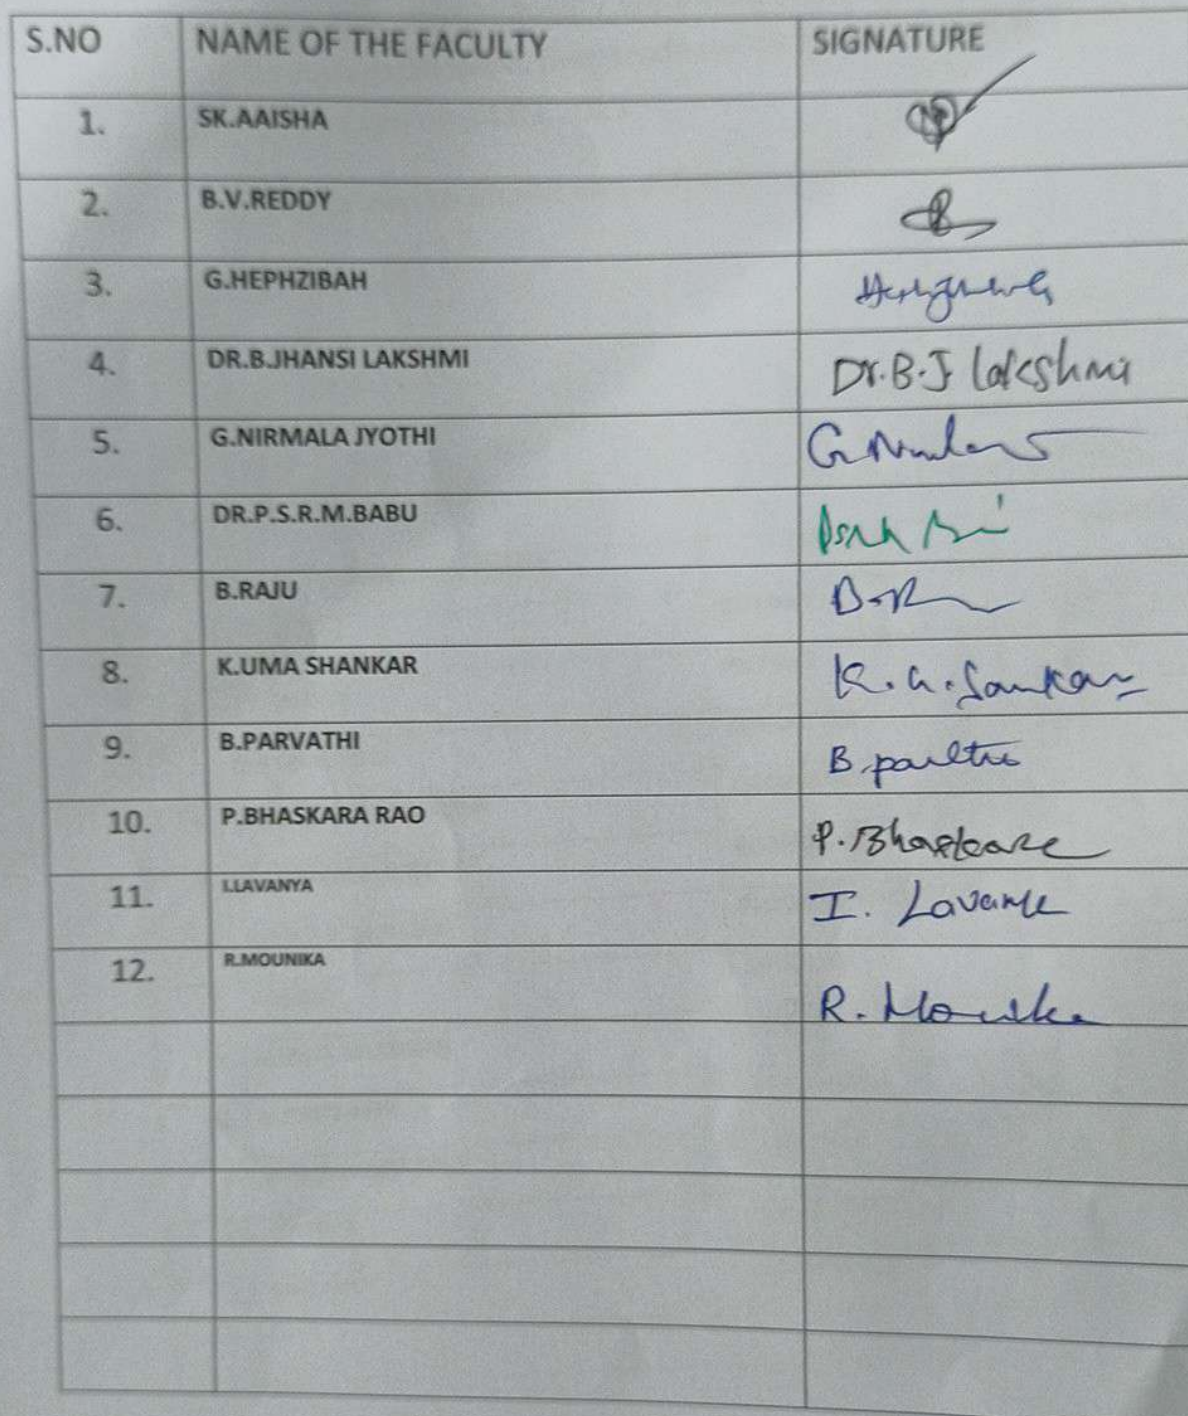 S.NO NAME OF THE FACULTY SIGNATURE
1. SK.AAISHA
2. B.V.REDDY
3. G.HEPHZIBAH
4. DR.B.JHANSI LAKSHMI Dr.B.J Lakshmi
5. G.NIRMALA JYOTHI
6. DR.P.S.R.M.BABU
7. B.RAJU
8. K.UMA SHANKAR K.U.Sankar
9. B.PARVATHI B.
10. P.BHASKARA RAO P.Bhaskara
11. I.LAVANYA I. Lavanya
12. R.MOUNIKA R. Mounika